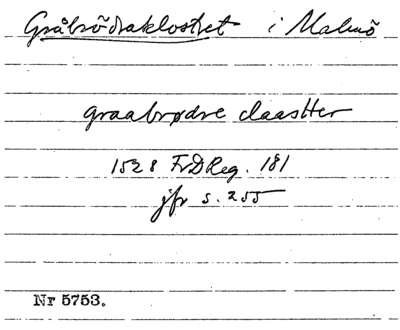 Gråbrödraklostret i Malmö
graabrødre claastter
1528 FrDReg. 181
jfr s. 255
Nr 5753.